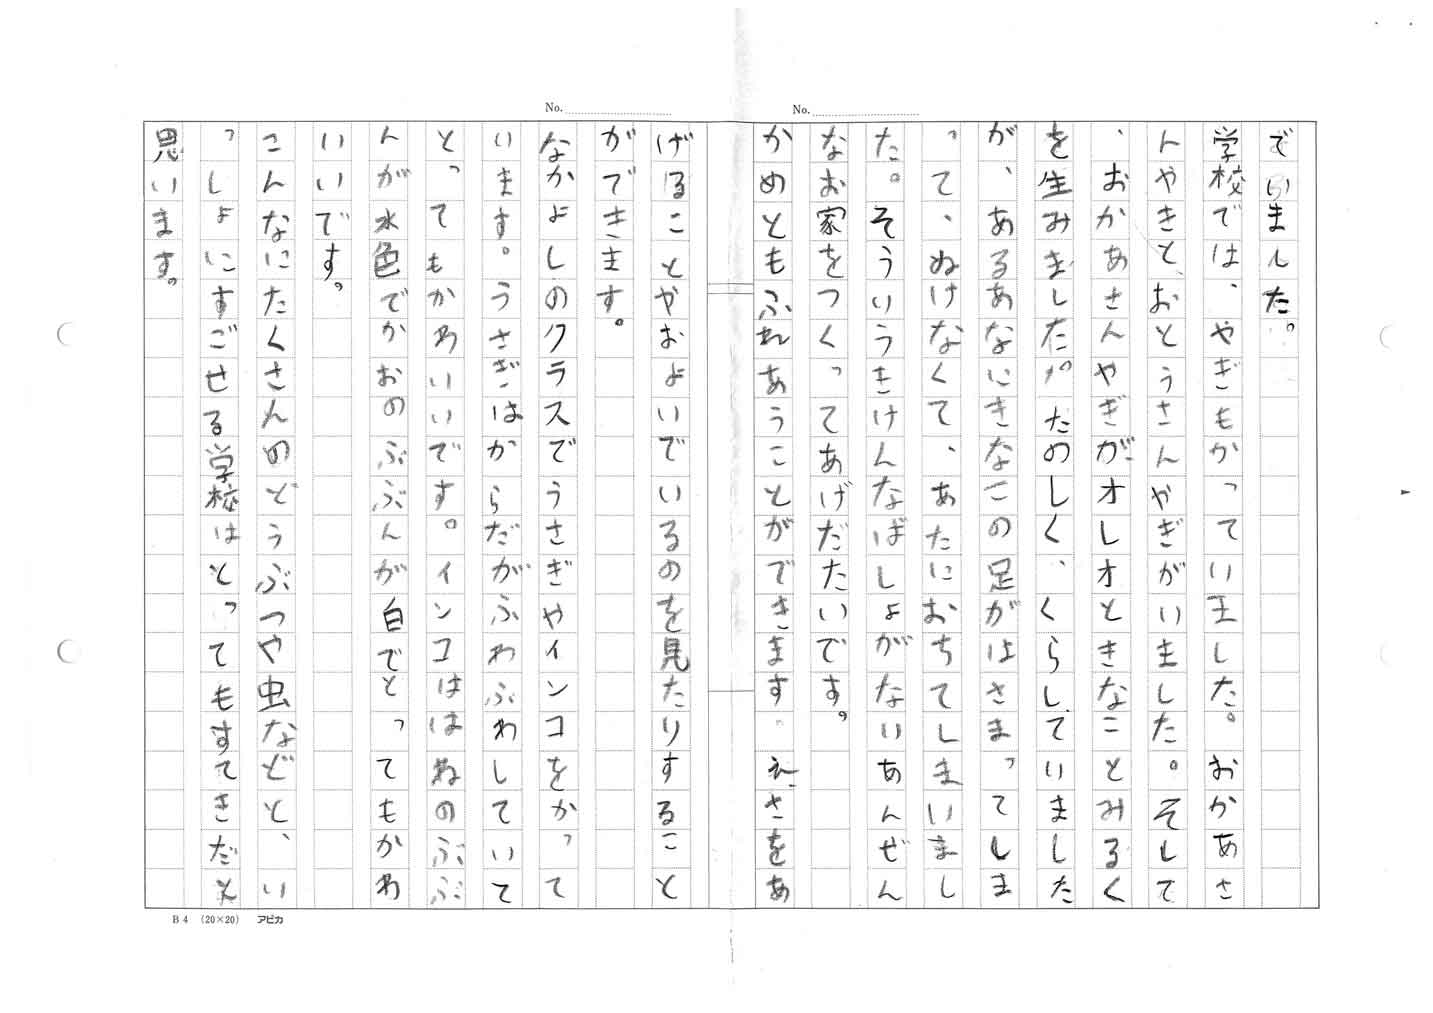 No.
No.
でいました。
学校では、やぎもかってい王した。おかあさ
んやきと、おとうさんやぎがいました。そして
、おかあさんやぎがオしオときなことみるく
を生みました。たのしく、くらしていました
が、あるあなにきなこの足がはさまってしま
って、ぬけなくて、あたにおちてしまいまし
た。そういうきけんなばしょがないあんぜん
なお家をつくってあげだたいです。
かめともふれあうことができます。えさをあ
げることやおよいでいるのを見たりすること
ができます。
なかよしのクラスでうさぎやインコをかって
います。うさぎはからだがふわふわしていて
とってもかわいいです。インコははぬのぶぶ
んが水色でかおのぶぶんが白でとってもかわ
いいです。
こんなにたくさんのどうぶつや虫などと、い
っしょにすごせる学校はとってもすてきだと
思います。
B4 (20×20) アピカ